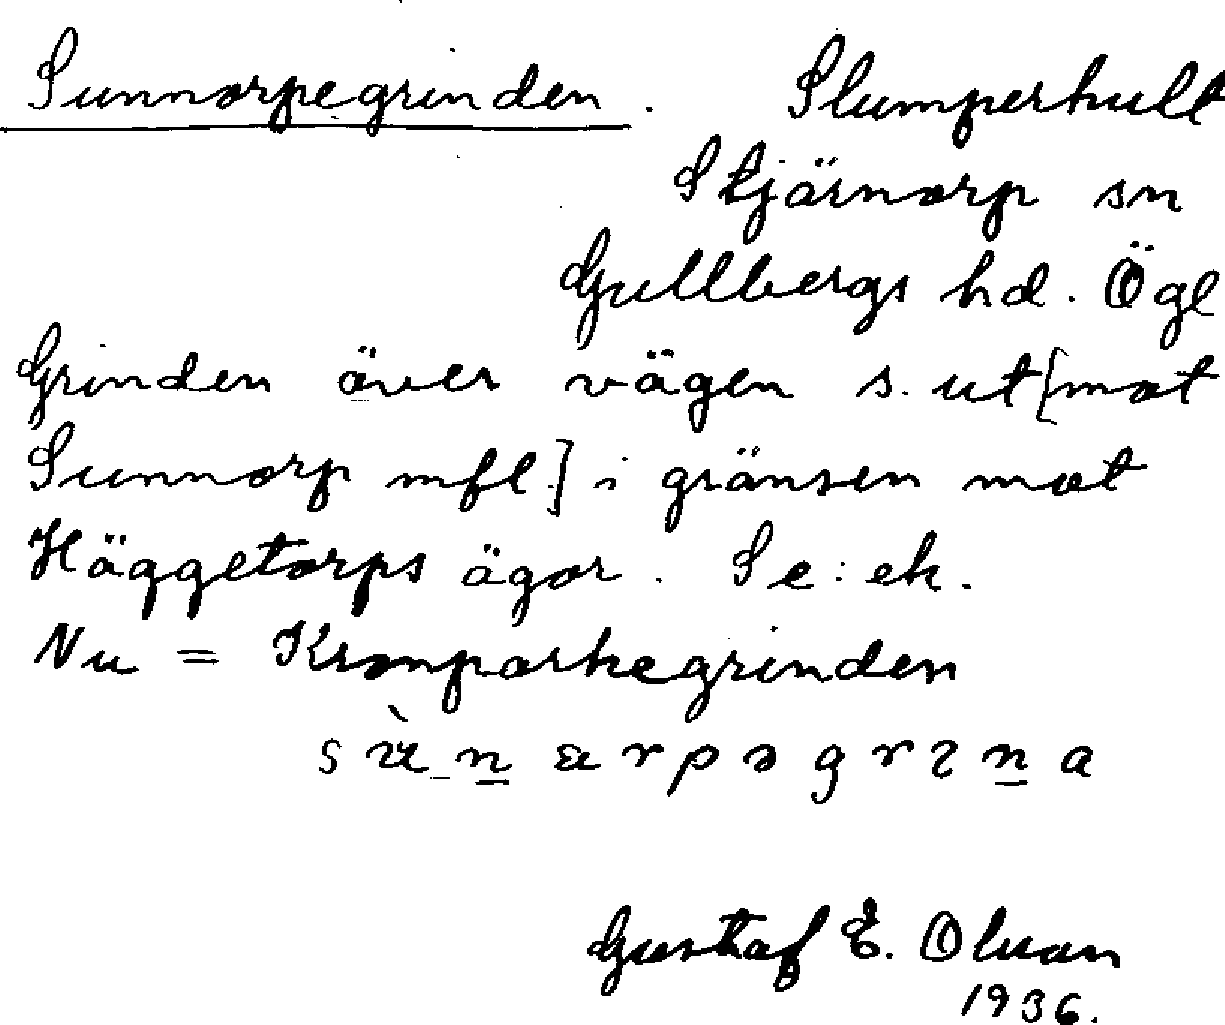 Sunnorpegrinden. Slumperhult
Stjärnorp sn
Gullbergs hd. Ögl
Grinden över vägen s. ut [mot
Sunnorp mfl] i gränsen mot
Häggetorps ägor. Se: ek.
Nu = Kronparkegrinden
Gustaf E. Olsson
1936.